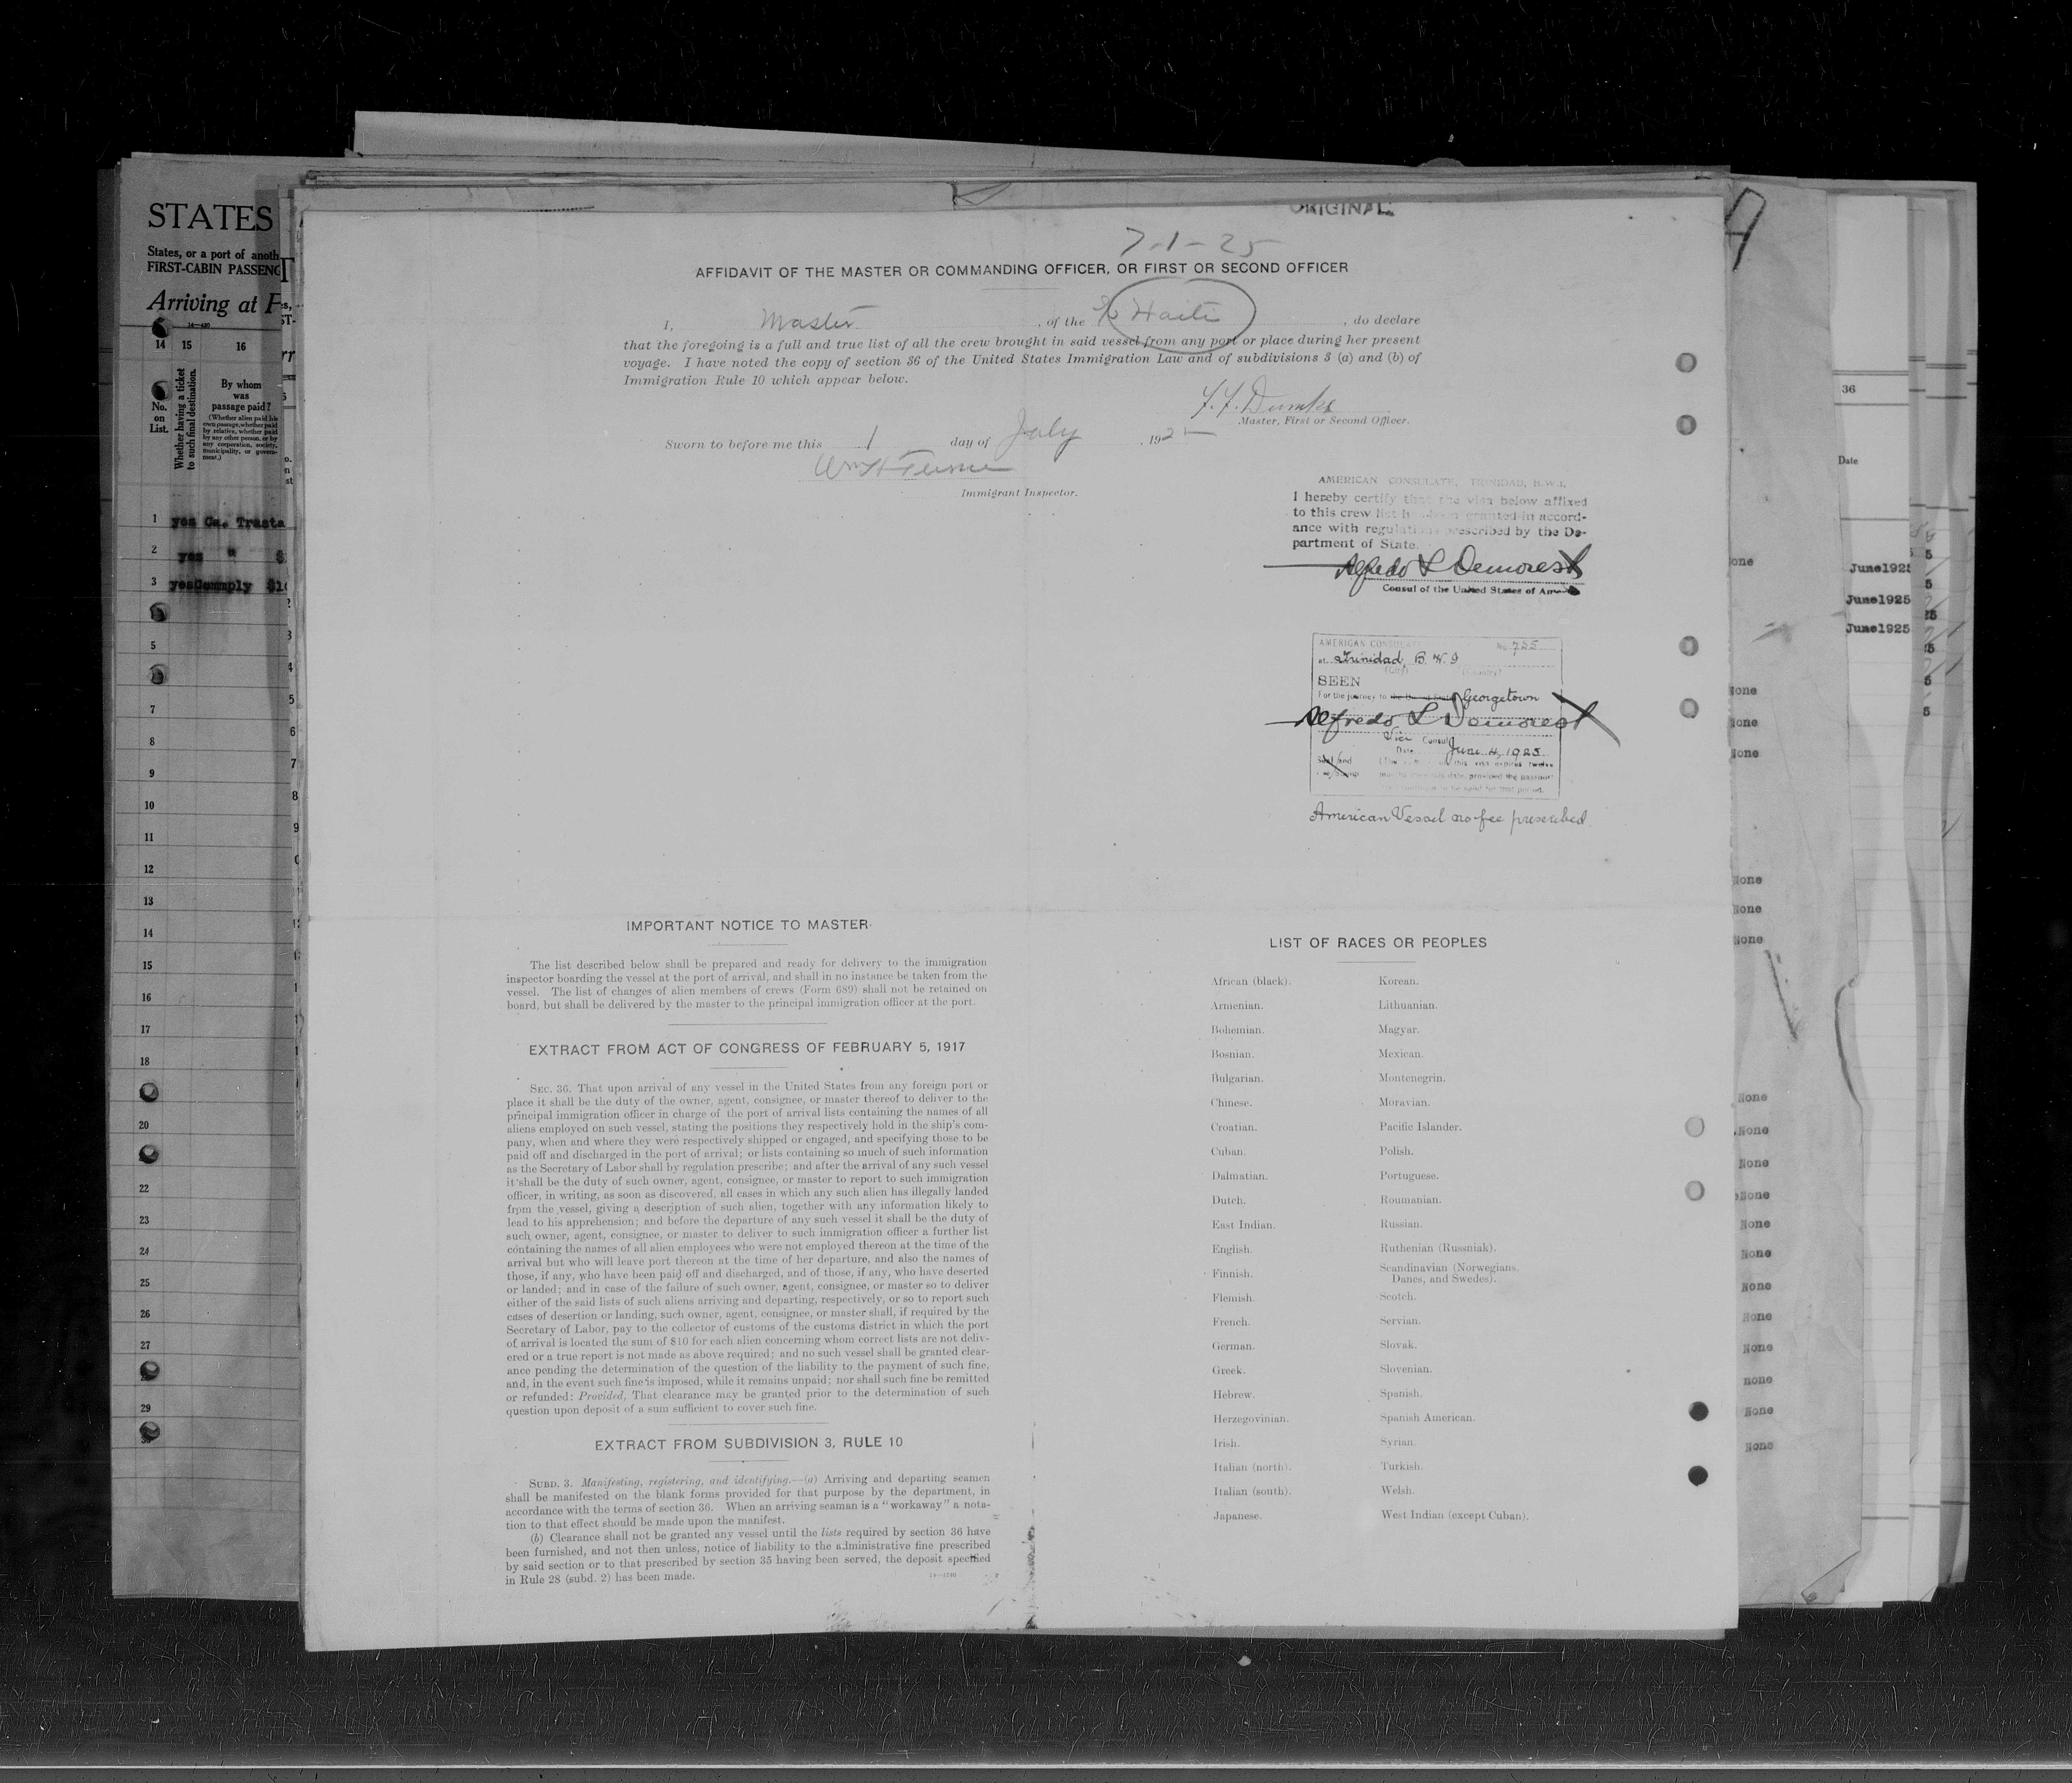 ORIGINAL
7-1-25
AFFIDAVIT OF THE MASTER OR COMMANDING OFFICER, OR FIRST OR SECOND OFFICER
I, Master, of the Haiti, do declare
that the foregoing is a full and true list of all the crew brought in said vessel from any port or place during her present
voyage. I have noted the copy of section 36 of the United States Immigration Law and of subdivisions 3 (a) and (b) of
Immigration Rule 10 which appear below.
Master, First or Second Officer.
Sworn to before me this 1 day of July, 1925
Immigrant Inspector.
AMERICAN CONSULATE, TRINIDAD, B.W.I.
I hereby certify that the visa below affixed
to this crew list has been granted in accord-
ance with regulations prescribed by the De-
partment of State.
Alfredo L Demorest
Consul of the United States of America
AMERICAN CONSULATE No. 725
at Trinidad, B.W.I
(City) (Country)
SEEN
For the journey to the United States Georgetown
Alfredo L Demorest
Vice Consul
Date June 4, 1925
American Vessel no fee prescribed
IMPORTANT NOTICE TO MASTER
The list described below shall be prepared and ready for delivery to the immigration
inspector boarding the vessel at the port of arrival, and shall in no instance be taken from the
vessel. The list of changes of alien members of crews (Form 689) shall not be retained on
board, but shall be delivered by the master to the principal immigration officer at the port.
EXTRACT FROM ACT OF CONGRESS OF FEBRUARY 5, 1917
SEC. 36. That upon arrival of any vessel in the United States from any foreign port or
place it shall be the duty of the owner, agent, consignee, or master thereof to deliver to the
principal immigration officer in charge of the port of arrival lists containing the names of all
aliens employed on such vessel, stating the positions they respectively hold in the ship's com-
pany, when and where they were respectively shipped or engaged, and specifying those to be
paid off and discharged in the port of arrival; or lists containing so much of such information
as the Secretary of Labor shall by regulation prescribe; and after the arrival of any such vessel
it shall be the duty of such owner, agent, consignee, or master to report to such immigration
officer, in writing, as soon as discovered, all cases in which any such alien has illegally landed
from the vessel, giving a description of such alien, together with any information likely to
lead to his apprehension; and before the departure of any such vessel it shall be the duty of
such owner, agent, consignee, or master to deliver to such immigration officer a further list
containing the names of all alien employees who were not employed thereon at the time of the
arrival but who will leave port thereon at the time of her departure, and also the names of
those, if any, who have been paid off and discharged, and of those, if any, who have deserted
or landed; and in case of the failure of such owner, agent, consignee, or master so to deliver
either of the said lists of such aliens arriving and departing, respectively, or so to report such
cases of desertion or landing, such owner, agent, consignee, or master shall, if required by the
Secretary of Labor, pay to the collector of customs of the customs district in which the port
of arrival is located the sum of $10 for each alien concerning whom correct lists are not deliv-
ered or a true report is not made as above required; and no such vessel shall be granted clear-
ance pending the determination of the question of the liability to the payment of such fine,
and, in the event such fine is imposed, while it remains unpaid; nor shall such fine be remitted
or refunded: Provided, That clearance may be granted prior to the determination of such
question upon deposit of a sum sufficient to cover such fine.
EXTRACT FROM SUBDIVISION 3, RULE 10
SUBD. 3. Manifesting, registering, and identifying.—(a) Arriving and departing seamen
shall be manifested on the blank forms provided for that purpose by the department, in
accordance with the terms of section 36. When an arriving seaman is a "workaway" a nota-
tion to that effect should be made upon the manifest.
(b) Clearance shall not be granted any vessel until the lists required by section 36 have
been furnished, and not then unless, notice of liability to the administrative fine prescribed
by said section or to that prescribed by section 35 having been served, the deposit specified
in Rule 28 (subd. 2) has been made.
LIST OF RACES OR PEOPLES
African (black). Korean.
Armenian. Lithuanian.
Bohemian. Magyar.
Bosnian. Mexican.
Bulgarian. Montenegrin.
Chinese. Moravian.
Croatian. Pacific Islander.
Cuban. Polish.
Dalmatian. Portuguese.
Dutch. Roumanian.
East Indian. Russian.
English. Ruthenian (Russniak).
Finnish. Scandinavian (Norwegians,
Danes, and Swedes).
Flemish. Scotch.
French. Servian.
German. Slovak.
Greek. Slovenian.
Hebrew. Spanish.
Herzegovinian. Spanish American.
Irish. Syrian.
Italian (north). Turkish.
Italian (south). Welsh.
Japanese. West Indian (except Cuban).
STATES
States, or a port of anoth
FIRST-CABIN PASSENG
Arriving at
14 15 16
No.
on
List.
Whether having a ticket
to such final destination.
By whom
was
passage paid?
(Whether alien paid his
own passage, whether paid
by relative, whether paid
by any other person, or by
any corporation, society,
municipality, or govern-
ment.)
1 yes Ca. Trasta
2 yes " $
3 yes Commply
5
7
8
9
10
11
12
13
14
15
16
17
18
20
22
23
24
25
26
27
29
36
Date
June1925
June1925
June1925
None
None
None
None
None
None
None
None
None
None
None
None
None
None
None
none
None
None